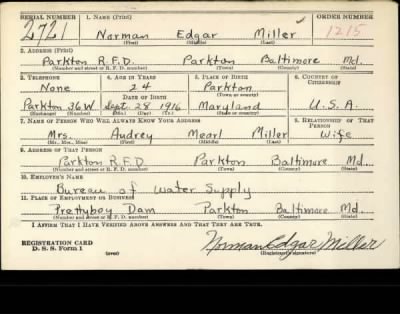 SERIAL NUMBER 1. NAME (Print) ORDER NUMBER
2721 Norman Edgar Miller 1215
(First) (Middle) (Last)
2. ADDRESS (Print)
Parkton R.F.D. Parkton Baltimore Md.
(Number and street or R.F.D. number) (Town) (County) (State)
3. TELEPHONE 4. AGE IN YEARS 5. PLACE OF BIRTH 6. COUNTRY OF CITIZENSHIP
None 24 Parkton
DATE OF BIRTH (Town or county)
Parkton 36W Sept. 28 1916 Maryland U.S.A.
(Exchange) (Number) (Mo.) (Day) (Yr.) (State or country)
7. NAME OF PERSON WHO WILL ALWAYS KNOW YOUR ADDRESS 8. RELATIONSHIP OF THAT PERSON
Mrs. Audrey Mearl Miller Wife
(Mr., Mrs., Miss) (First) (Middle) (Last)
9. ADDRESS OF THAT PERSON
Parkton R.F.D Parkton Baltimore Md.
(Number and street or R.F.D. number) (Town) (County) (State)
10. EMPLOYER'S NAME
Bureau of Water Supply
11. PLACE OF EMPLOYMENT OR BUSINESS
Prettyboy Dam Parkton Baltimore Md.
(Number and street or R.F.D. number) (Town) (County) (State)
I AFFIRM THAT I HAVE VERIFIED ABOVE ANSWERS AND THAT THEY ARE TRUE.
REGISTRATION CARD
D. S. S. Form 1 (over) Norman Edgar Miller
(Registrant's signature)